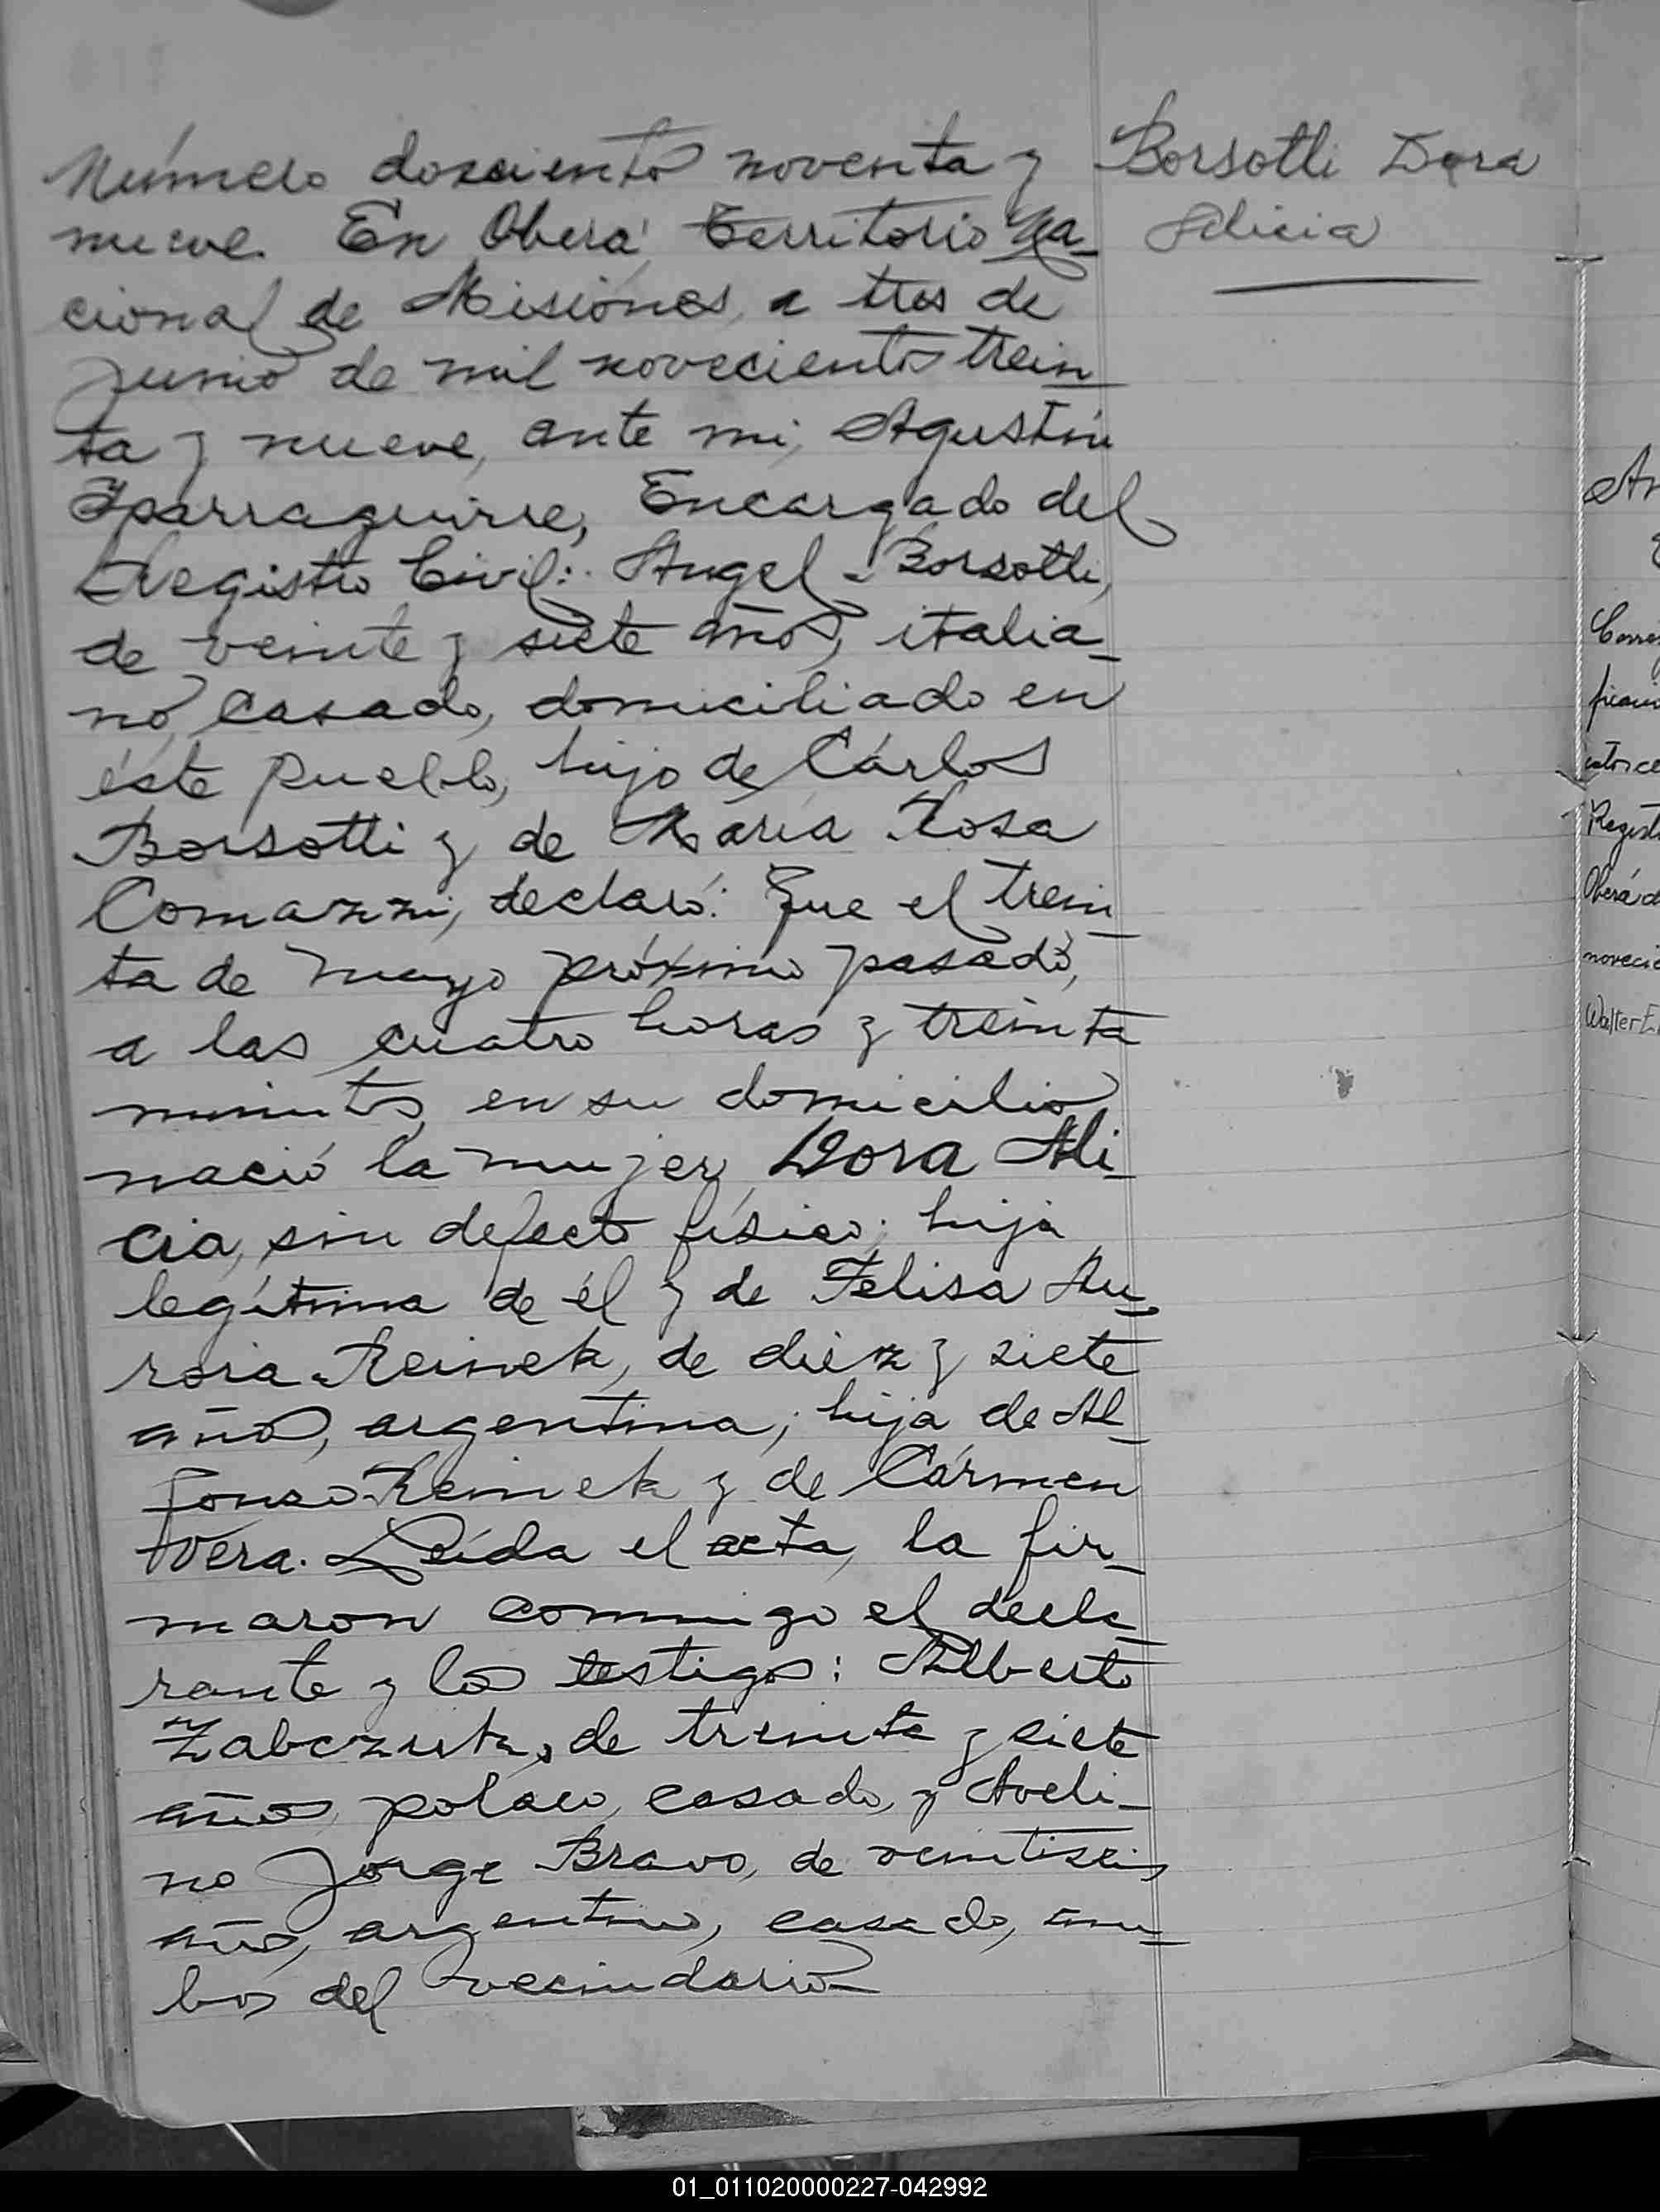 Número doscientos noventa y
nueve. En Oberá Territorio Na-
cional de Misiones, a tres de
junio de mil novecientos trein-
ta y nueve, ante mi, Agustín
Yparraguirre, Encargado del
Registro Civil: Angel Borsotti,
de veinte y siete años, italia-
no, casado, domiciliado en
éste pueblo, hijo de Cárlos
Borsotti y de María Rosa
Comazzi, declaró: Que el trein-
ta de mayo próximo pasado,
a las cuatro horas y treinta
minutos, en su domicilio,
nació la mujer Dora Ali-
cia, sin defecto físico; hija
legítima de él y de Felisa Au-
rora Reinek, de diez y siete
años, argentina; hija de Al-
fonso Reinek y de Cármen
Vera. Leída el acta, la fir-
maron conmigo el decla-
rante y los testigos: Alberto
Zabczuk, de treinta y siete
años, polaco, casado, y Aveli-
no Jorge Bravo, de veintiseis
años, argentino, casado, am-
bos del vecindario
Borsotti Dora
Alicia
novecie
Walter E.
01_011020000227-042992